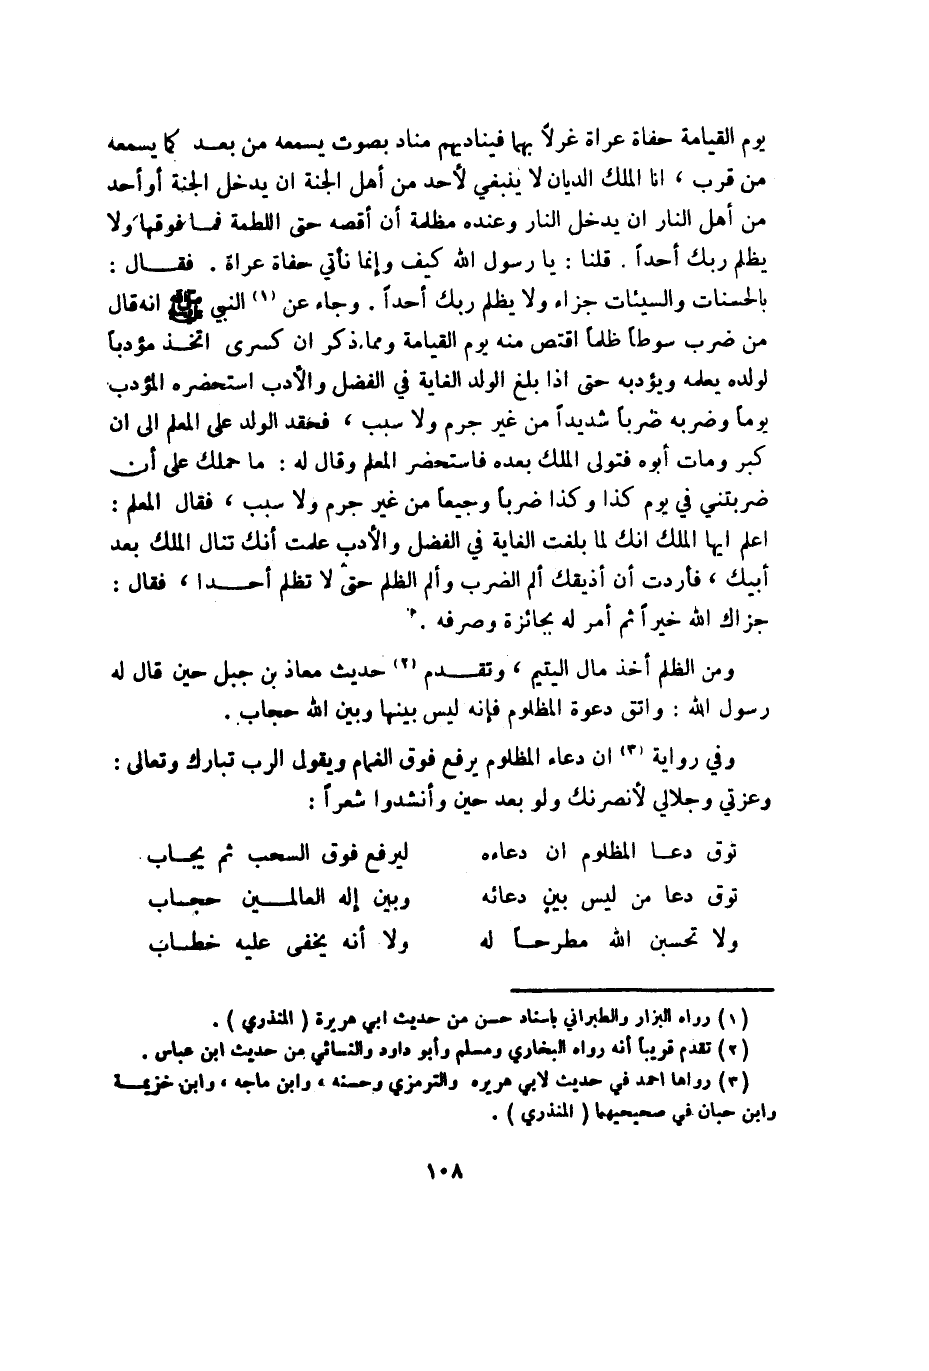 يوم القيامة حفاة عراة غرلاً بهما فيناديهم مناد بصوت يسمعه من بعد كما يسمعه
من قرب ، انا الملك الديان لا ينبغي لأحد من أهل الجنة ان يدخل الجنة أو أحد
من أهل النار ان يدخل النار وعنده مظلمة أن أقصه حتى اللطمة فما فوقها ولا
يظلم ربك أحداً . قلنا : يا رسول الله كيف وإنما نأتي حفاة عراة . فقال :
بالحسنات والسيئات جزاء ولا يظلم ربك أحداً . وجاء عن (١) النبي ﷺ انه قال
من ضرب سوطاً ظلماً اقتص منه يوم القيامة ومما ذكر ان كسرى اتخذ مؤدباً
لولده يعلمه ويؤدبه حتى اذا بلغ الولد الغاية في الفضل والأدب استحضره المؤدب
يوماً وضربه ضرباً شديداً من غير جرم ولا سبب ، فحقد الولد على المعلم الى ان
كبر ومات أبوه فتولى الملك بعده فاستحضر المعلم وقال له : ما حملك على أن
ضربتني في يوم كذا وكذا ضرباً وجيعاً من غير جرم ولا سبب ، فقال المعلم :
اعلم ايها الملك انك لما بلغت الغاية في الفضل والأدب علمت أنك تنال الملك بعد
أبيك ، فأردت أن أذيقك ألم الضرب وألم الظلم حتى لا تظلم أحدا ، فقال :
جزاك الله خيراً ثم أمر له بجائزة وصرفه .
ومن الظلم أخذ مال اليتيم ، وتقدم (٢) حديث معاذ بن جبل حين قال له
رسول الله : واتق دعوة المظلوم فإنه ليس بينها وبين الله حجاب .
وفي رواية (٣) ان دعاء المظلوم يرفع فوق الغمام ويقول الرب تبارك وتعالى :
وعزتي وجلالي لأنصرنك ولو بعد حين وأنشدوا شعراً :
توق دعا المظلوم ان دعاءه ليرفع فوق السحب ثم يجاب
توق دعا من ليس بين دعائه وبين إله العالمين حجاب
ولا تحسبن الله مطرحاً له ولا أنه يخفى عليه خطاب
(١) رواه البزار والطبراني باسناد حسن من حديث ابي هريرة ( المنذري ) .
(٢) تقدم قريباً أنه رواه البخاري ومسلم وأبو داود والنسائي من حديث ابن عباس .
(٣) رواها احمد في حديث لابي هريره والترمزي وحسنه ، وابن ماجه ، وابن خزيمة
وابن حبان في صحيحيهما ( المنذري ) .
١٠٨